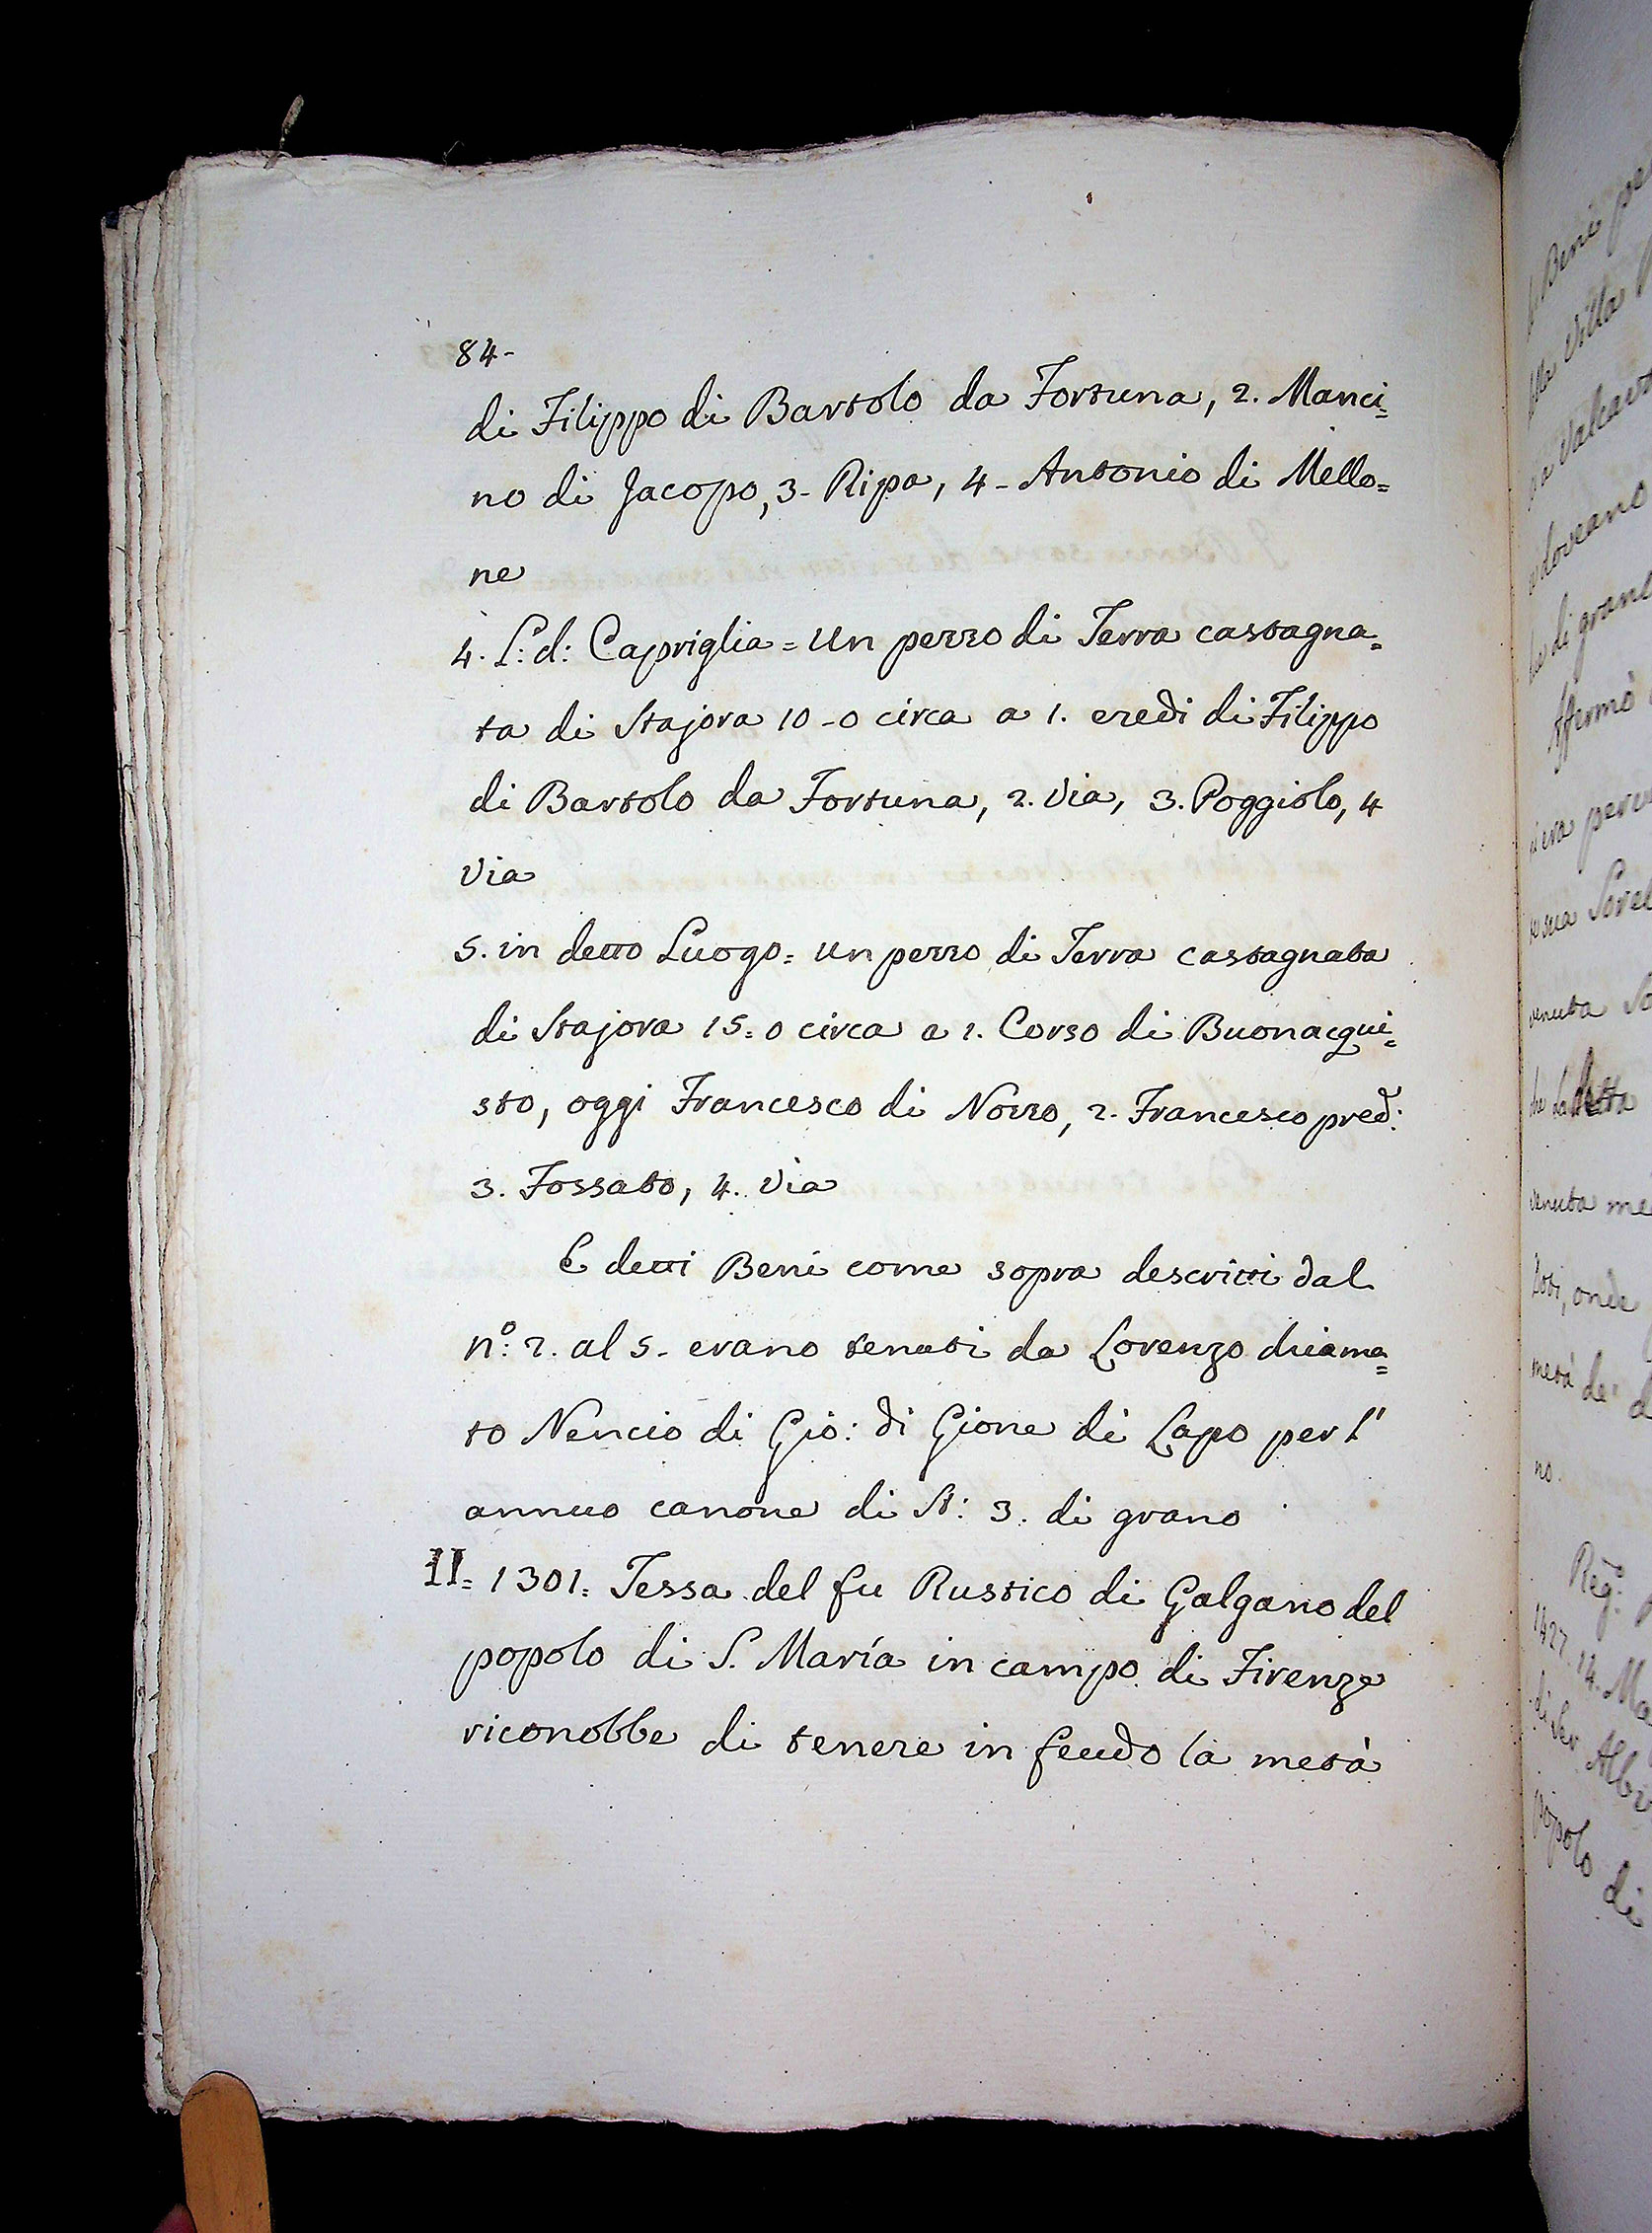 84-
di Filippo di Bartolo da Fortuna, 2. Manci=
no di Jacopo, 3- Ripa, 4- Antonio di Mello=
ne
4. L: d: Capriglia = Un pezzo di Terra castagna=
ta di Stajora 10-0 circa a 1. eredi di Filippo
di Bartolo da Fortuna, 2. Via, 3. Poggiolo, 4
Via
5. in detto Luogo = Un pezzo di Terra castagnata
di Stajora 15=0 circa a 1. Corso di Buonacqui=
sto, oggi Francesco di Nozzo, 2. Francesco pred:
3. Fossato, 4. Via
E detti Beni come sopra descritti dal
n.º: 2. al 5- erano tenuti da Lorenzo chiama=
to Nencio di Gio: di Gione di Lapo per l'
annuo canone di St: 3. di grano
II= 1301= Tessa del fu Rustico di Galgano del
popolo di S. María in campo di Firenze
riconobbe di tenere in feudo la metà
Beni
Villa
doveano
di grano
Affermò
venuta
venuta
onde
metà de'
no.
Reg:
1427. 14.
di Ser
Popolo di